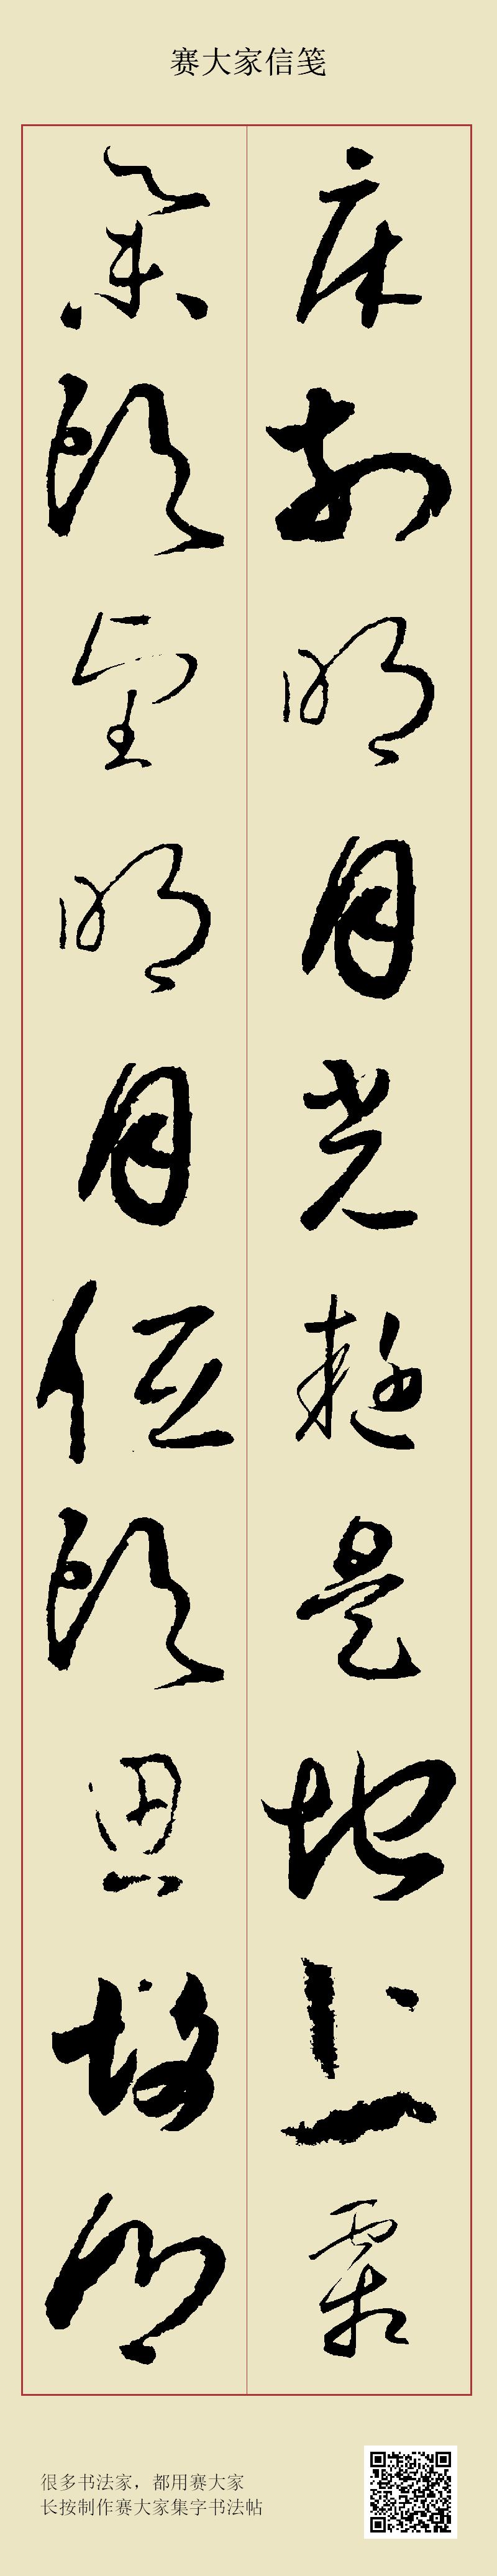 赛大家信笺
床前明月光疑是地上霜
举头望明月低头思故乡
很多书法家，都用赛大家
长按制作赛大家集字书法帖